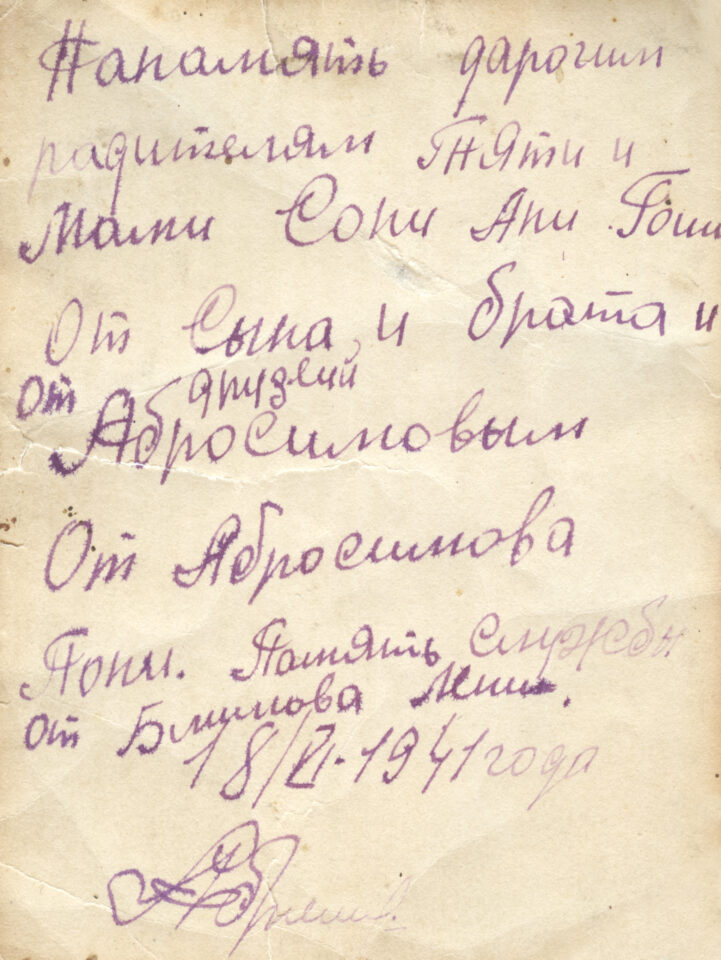 Напамять дарогим
радителям Тяти и
Мами Сони Ани Гоши
От Сына и брата и
От друзей
Абросимовым
От Абросимова
Тони. Память службы
от Блинова Лени.
18/VI-1941 года